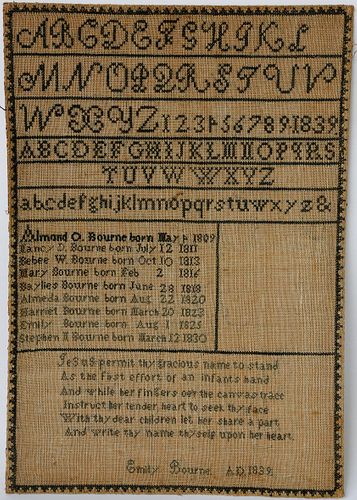 ABCDEFGHIJKL
MNOPQRSTUV
WXYZ1234567891839
ABCDEFGHIJKLMNOPQRS
TUVW WXYZ
abcdefghijklmnopqrstuwxyz&
Almond O. Bourne born May 1 1809
Nancy D. Bourne born July 12 1811
Bebee W. Bourne born Oct 10 1813
Mary Bourne born Feb 2 1816
Baylies Bourne born June 28 1818
Almeda Bourne born Aug 22 1820
Harriet Bourne born March 20 1823
Emily Bourne born Aug 1 1825
Stephen N Bourne born March 12 1830
Jesus permit thy gracious name to stand
As the first effort of an infants hand
And while her fingers oer the canvas trace
Instruct her tender heart to seek thy face
With thy dear children let her share a part
And write thy name thyself upon her heart
Emily Bourne. A.D. 1839.